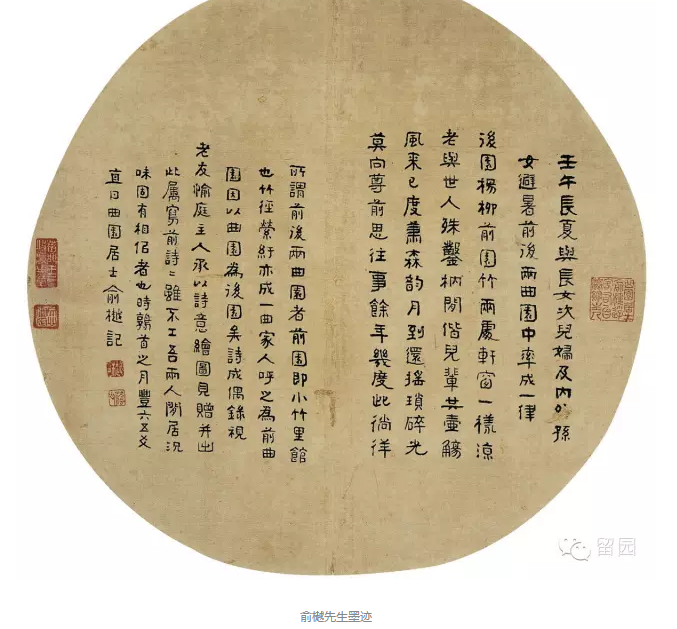 壬午長夏與長女次兒婦及內外孫
女避暑前後兩曲園中率成一律
後園楊柳前園竹兩處軒窗一樣涼
老與世人殊鑿枘閒偕兒輩共壺觴
風來已度蕭森韵月到還搖瑣碎光
莫向尊前思往事餘年幾度此徜徉
所謂前後兩曲園者前園即小竹里館
也竹徑縈紆亦成一曲家人呼之為前曲
園因以曲園為後園矣詩成偶錄視
老友愉庭主人承以詩意繪圖見贈并出
此屬寫前詩詩雖不工吾兩人閒居況
味固有相侣者也時鶉首之月豐六五爻
直日曲園居士俞樾記
留园
俞樾先生墨迹